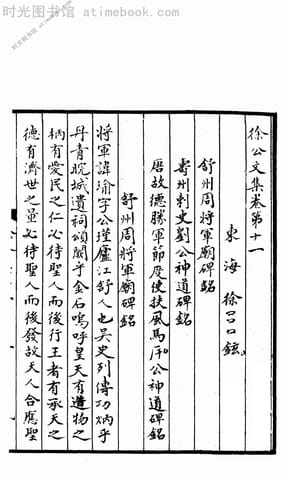 时光图书馆 - atimebook.com
徐公文集卷第十一
東海徐口口鉉
舒州周將軍廟碑銘
壽州刺史劉公神道碑銘
唐故德勝軍節度使扶風馬匡公神道碑銘
舒州周將軍廟碑銘
將軍諱瑜字公瑾廬江舒人也吴史列傳功炳乎
丹青皖城遺祠頌闕乎金石嗚呼皇天有造物之
柄有愛民之仁必待聖人而後行王者有承天之
德有濟世之量必待聖人而後發故天人合應聖
时光图书馆 - atimebook.com